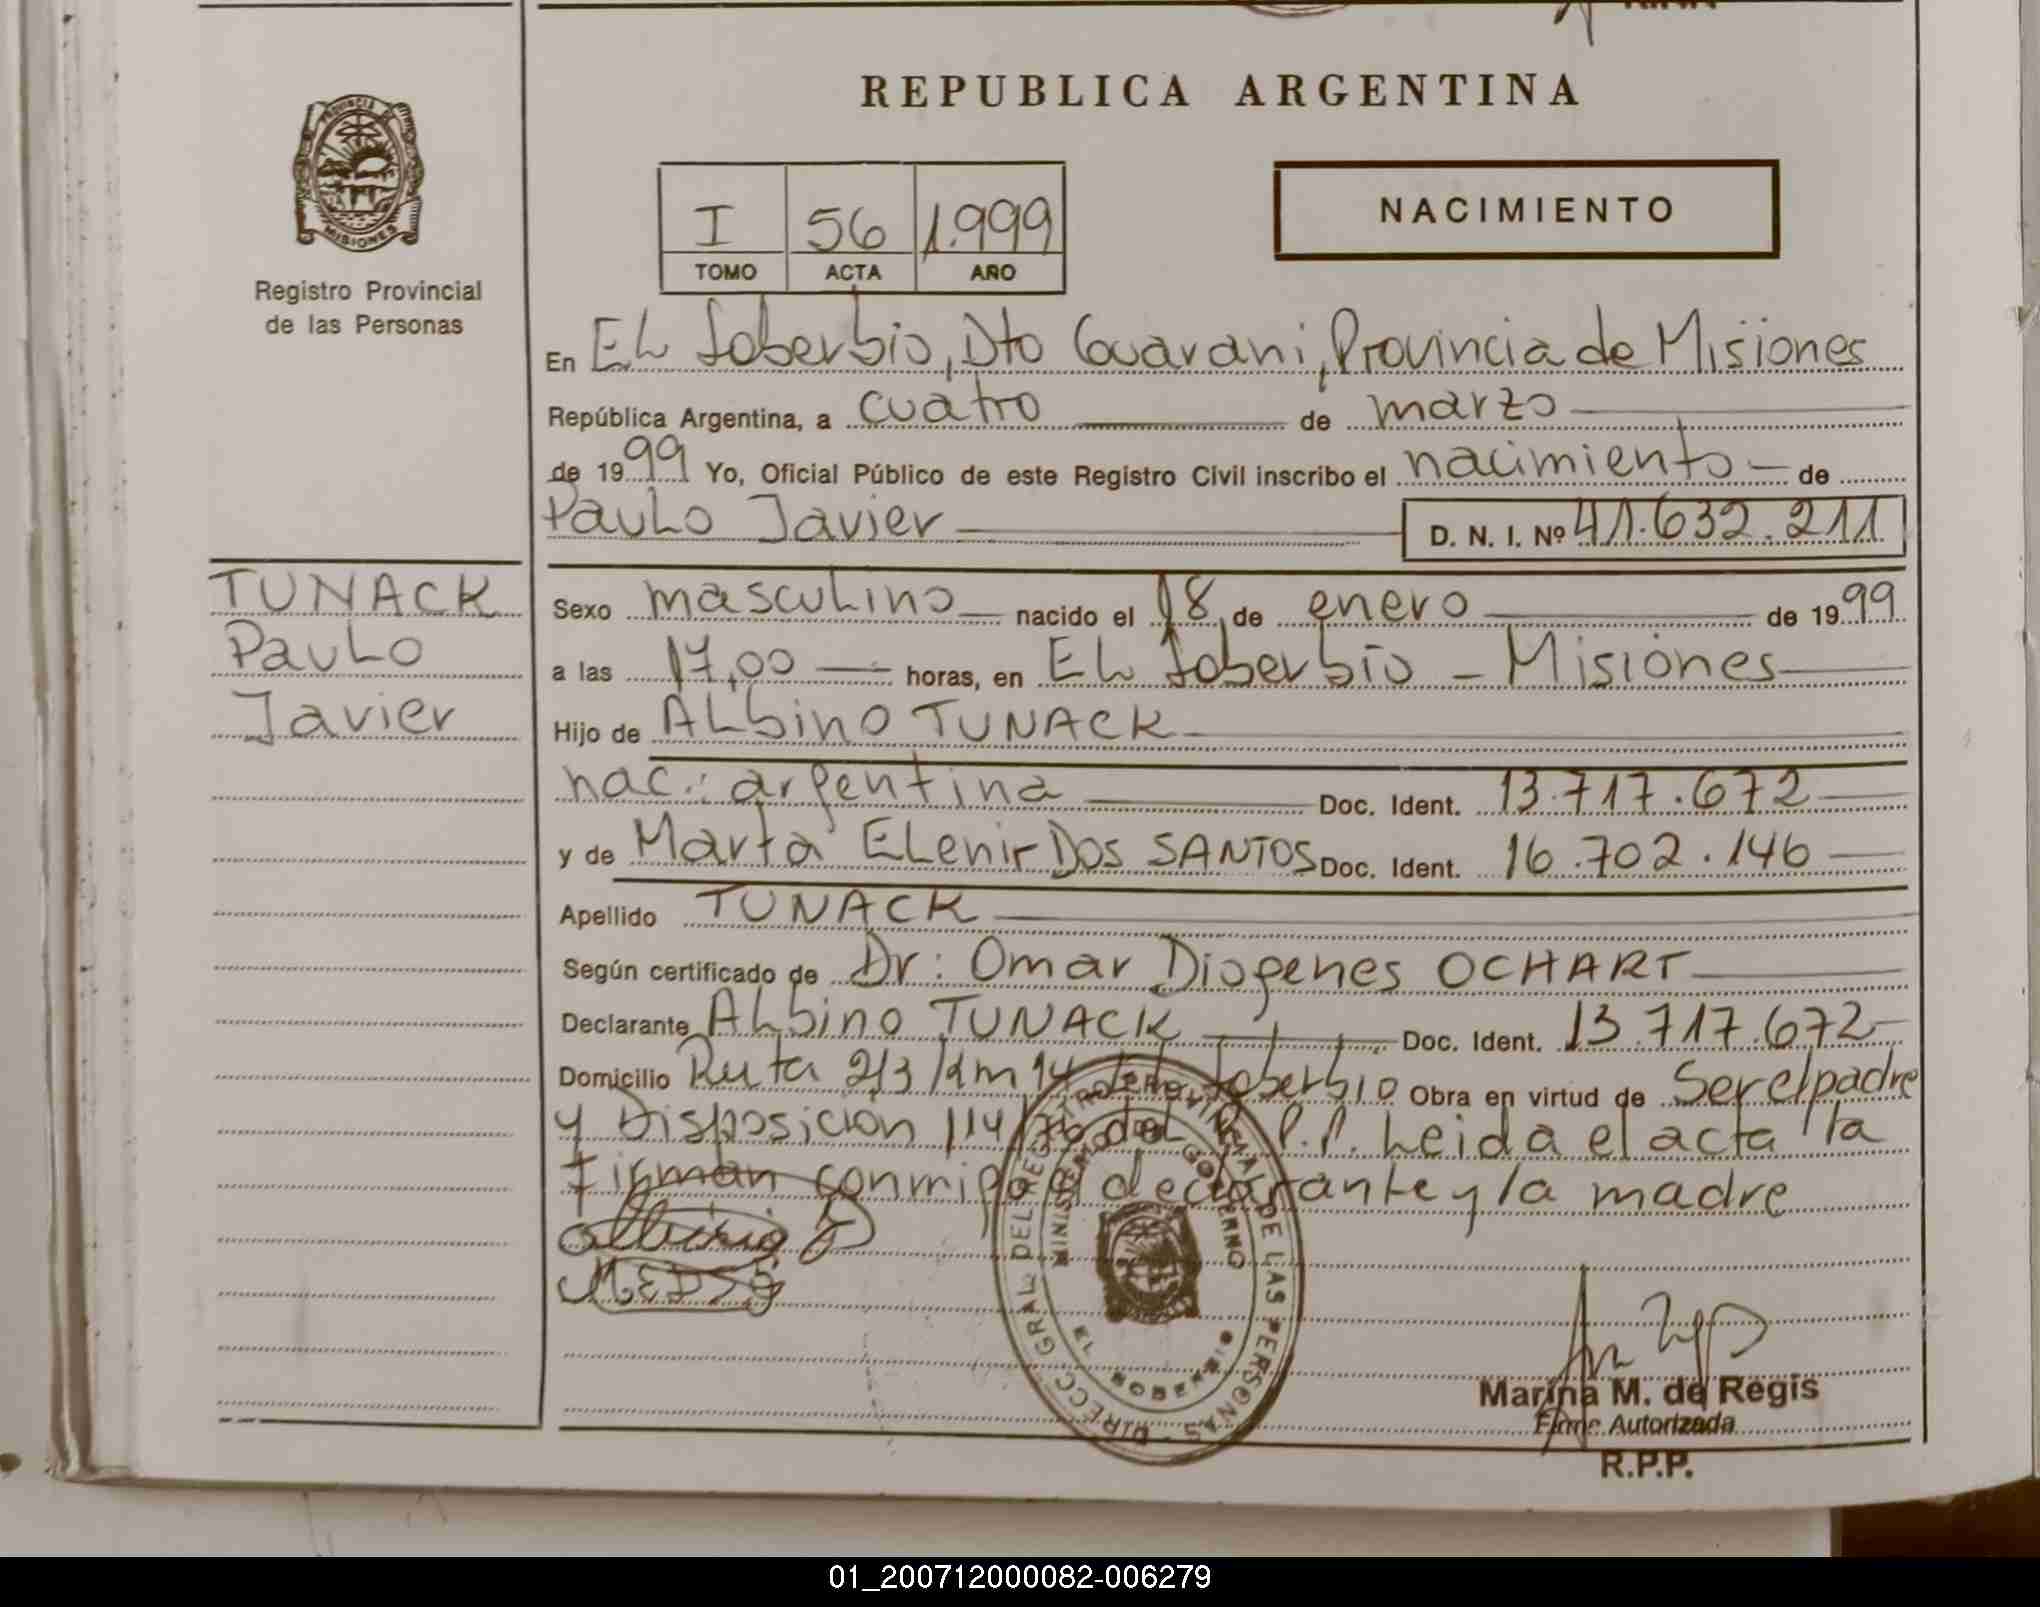 REPUBLICA ARGENTINA
PROVINCIA
MISIONES
Registro Provincial
de las Personas
I 56 1.999
TOMO ACTA AÑO
NACIMIENTO
En EL Soberbio, Dto Guarani, Provincia de Misiones
República Argentina, a cuatro de marzo
de 1999 Yo, Oficial Público de este Registro Civil inscribo el nacimiento de
PauLo Javier D. N. I. Nº 41.632.211
TUNACK
PauLo
Javier
Sexo mascuLino nacido el 18 de enero de 1999
a las 17,00 horas, en EL Soberbio - Misiones
Hijo de ALbino TUNACK
nac.: argentina Doc. Ident. 13.717.672
y de Marta ELenir Dos SANTOS Doc. Ident. 16.702.146
Apellido TUNACK
Según certificado de Dr: Omar Diogenes OCHART
Declarante ALbino TUNACK Doc. Ident. 13.717.672
Domicilio Ruta 2/3 km 14 EL Soberbio Obra en virtud de Ser el padre
y Disposicion 114/76 del R.P.P. Leida el acta la
Firman conmigo el declarante y la madre
DIRECC. GRAL. DEL REGISTRO PROVINCIAL DE LAS PERSONAS
MINISTERIO DE GOBIERNO
EL SOBERBIO
Marina M. de Regis
Firma Autorizada
R.P.P.
01_200712000082-006279